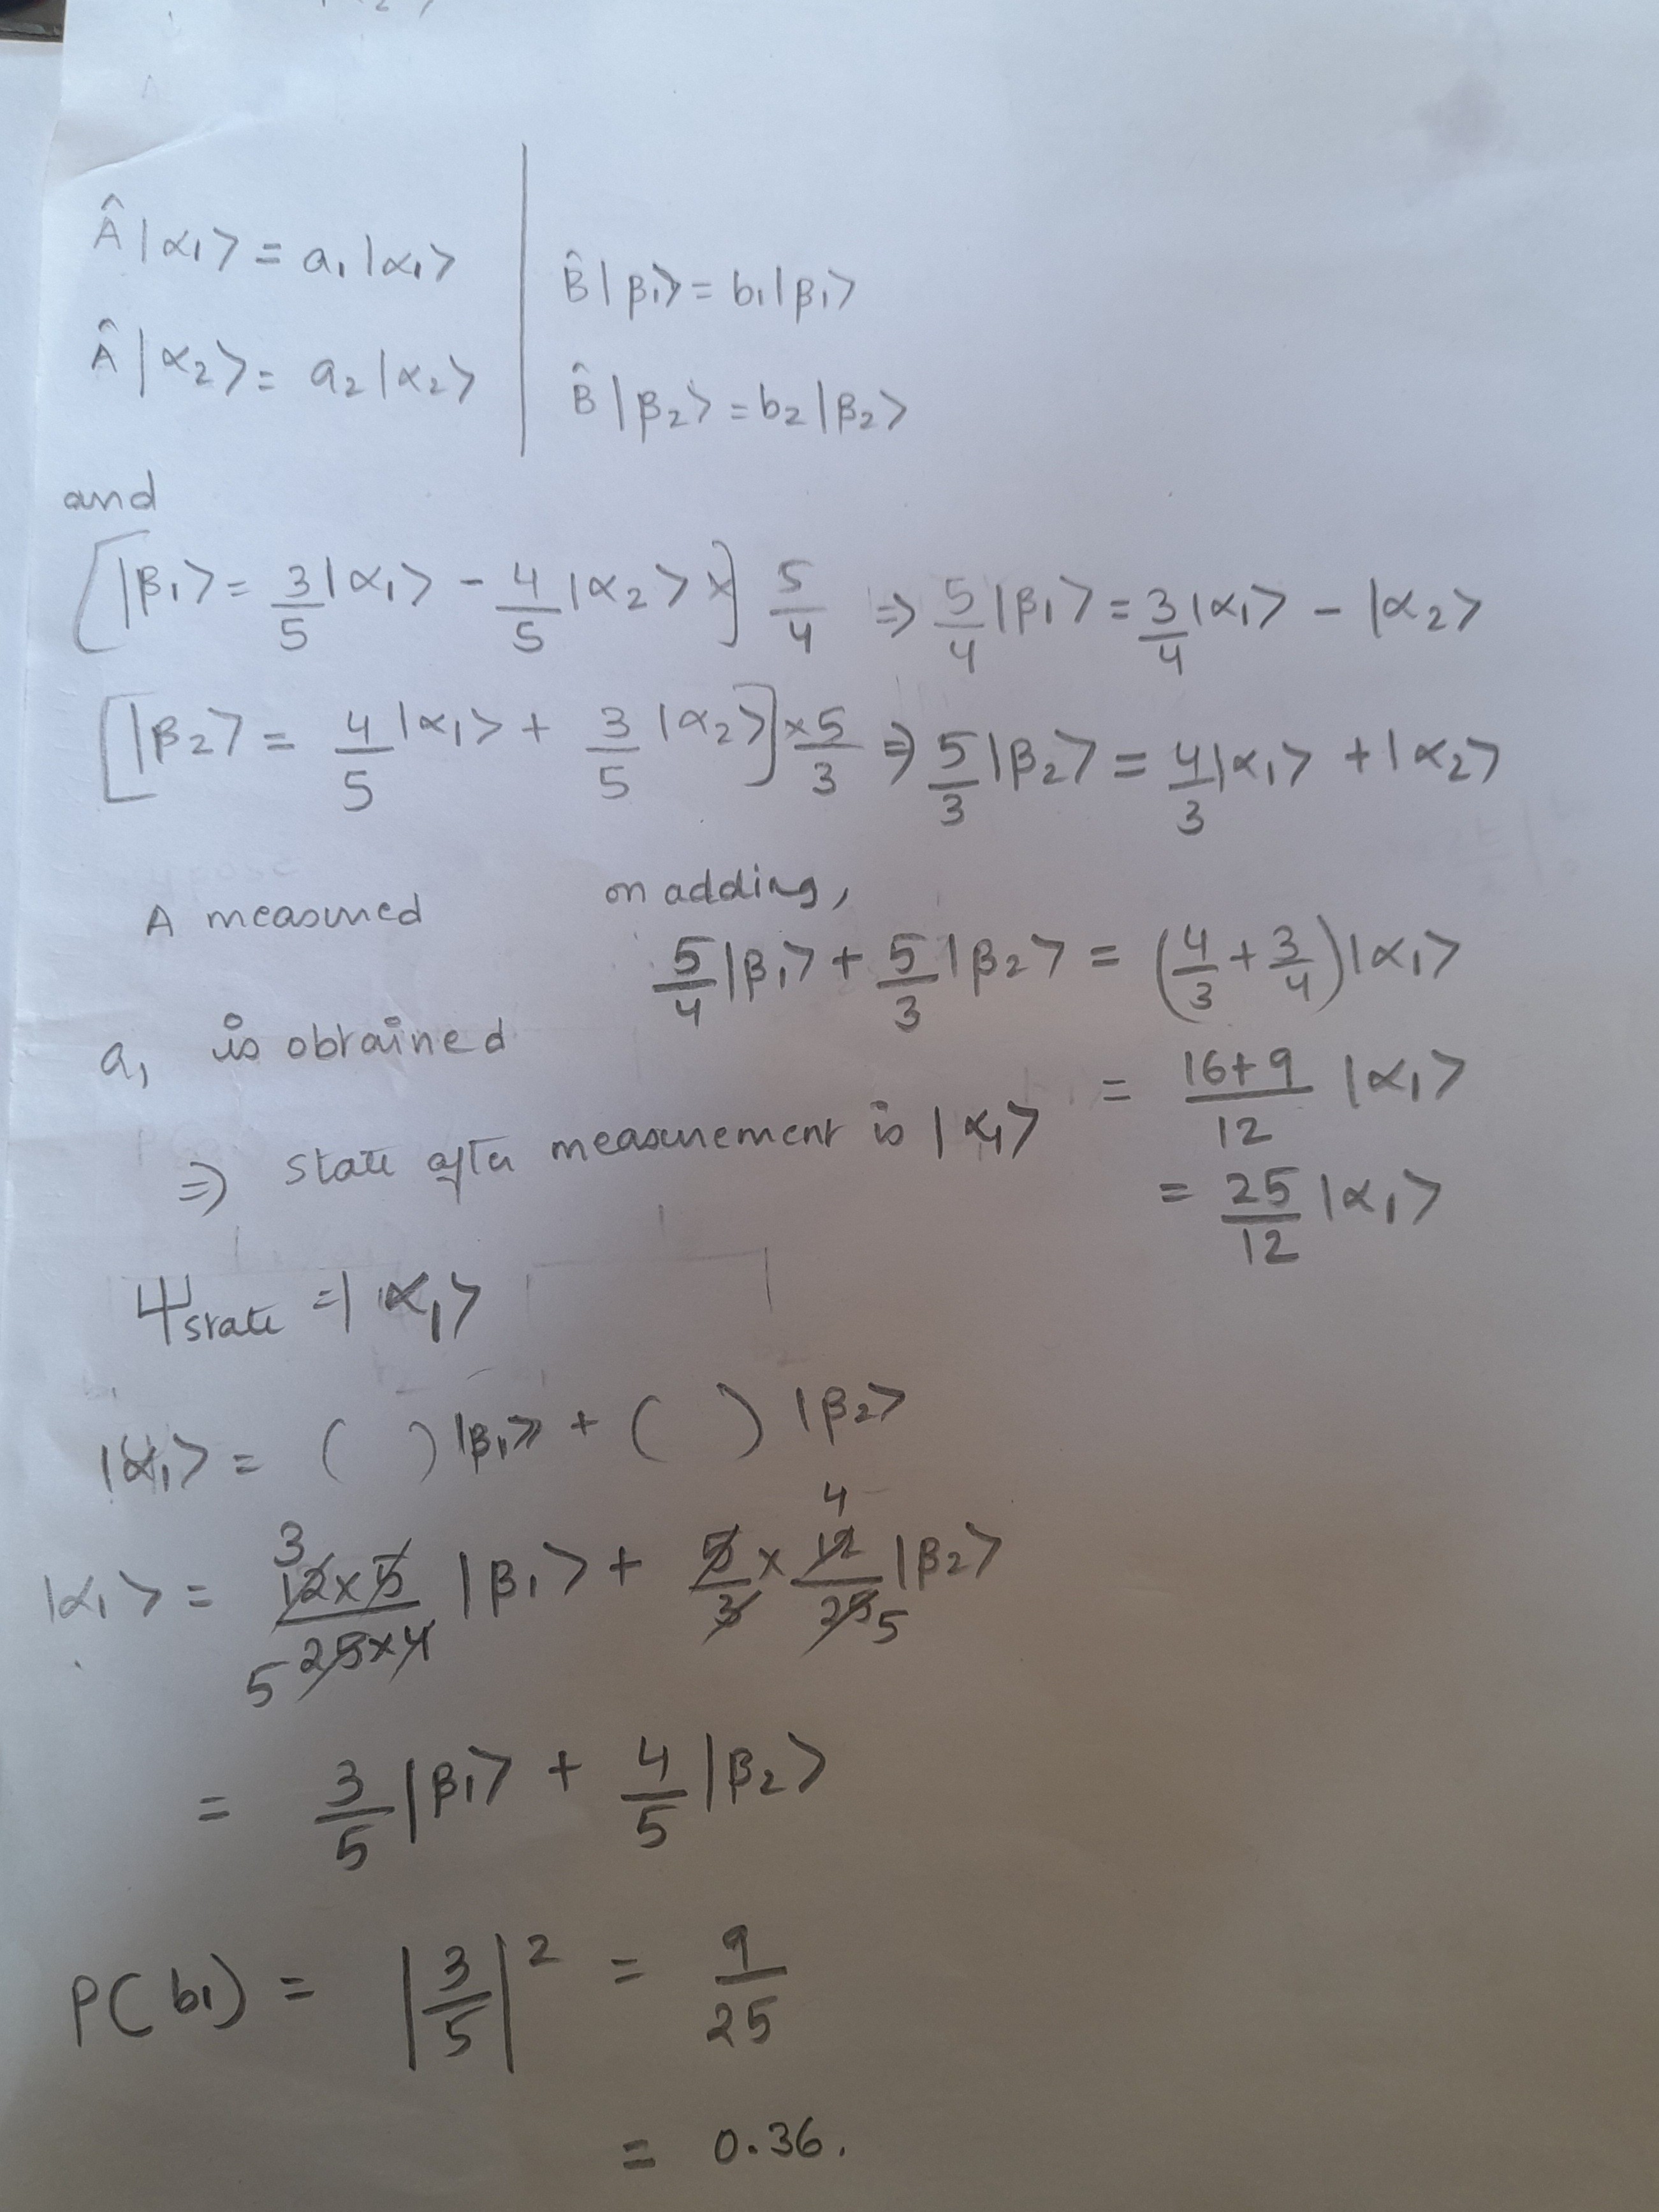 Â|α₁> = a₁|α₁>
Â|α₂> = a₂|α₂>
B̂|β₁> = b₁|β₁>
B̂|β₂> = b₂|β₂>
and
[|β₁> = 3/5|α₁> - 4/5|α₂> ×] 5/4 ⇒ 5/4|β₁> = 3/4|α₁> - |α₂>
[|β₂> = 4/5|α₁> + 3/5|α₂>] × 5/3 ⇒ 5/3|β₂> = 4/3|α₁> + |α₂>
A measured
a₁ is obtained
⇒ state after measurement is |α₁>
on adding,
5/4|β₁> + 5/3|β₂> = (4/3 + 3/4)|α₁>
= 16+9/12 |α₁>
= 25/12 |α₁>
Ψstate = |α₁>
|α₁> = ( )|β₁> + ( )|β₂>
|α₁> = 3 12×5/25×4 5 |β₁> + 5/3 × 4 12/25 5 |β₂>
= 3/5|β₁> + 4/5|β₂>
P(b₁) = |3/5|² = 9/25
= 0.36.